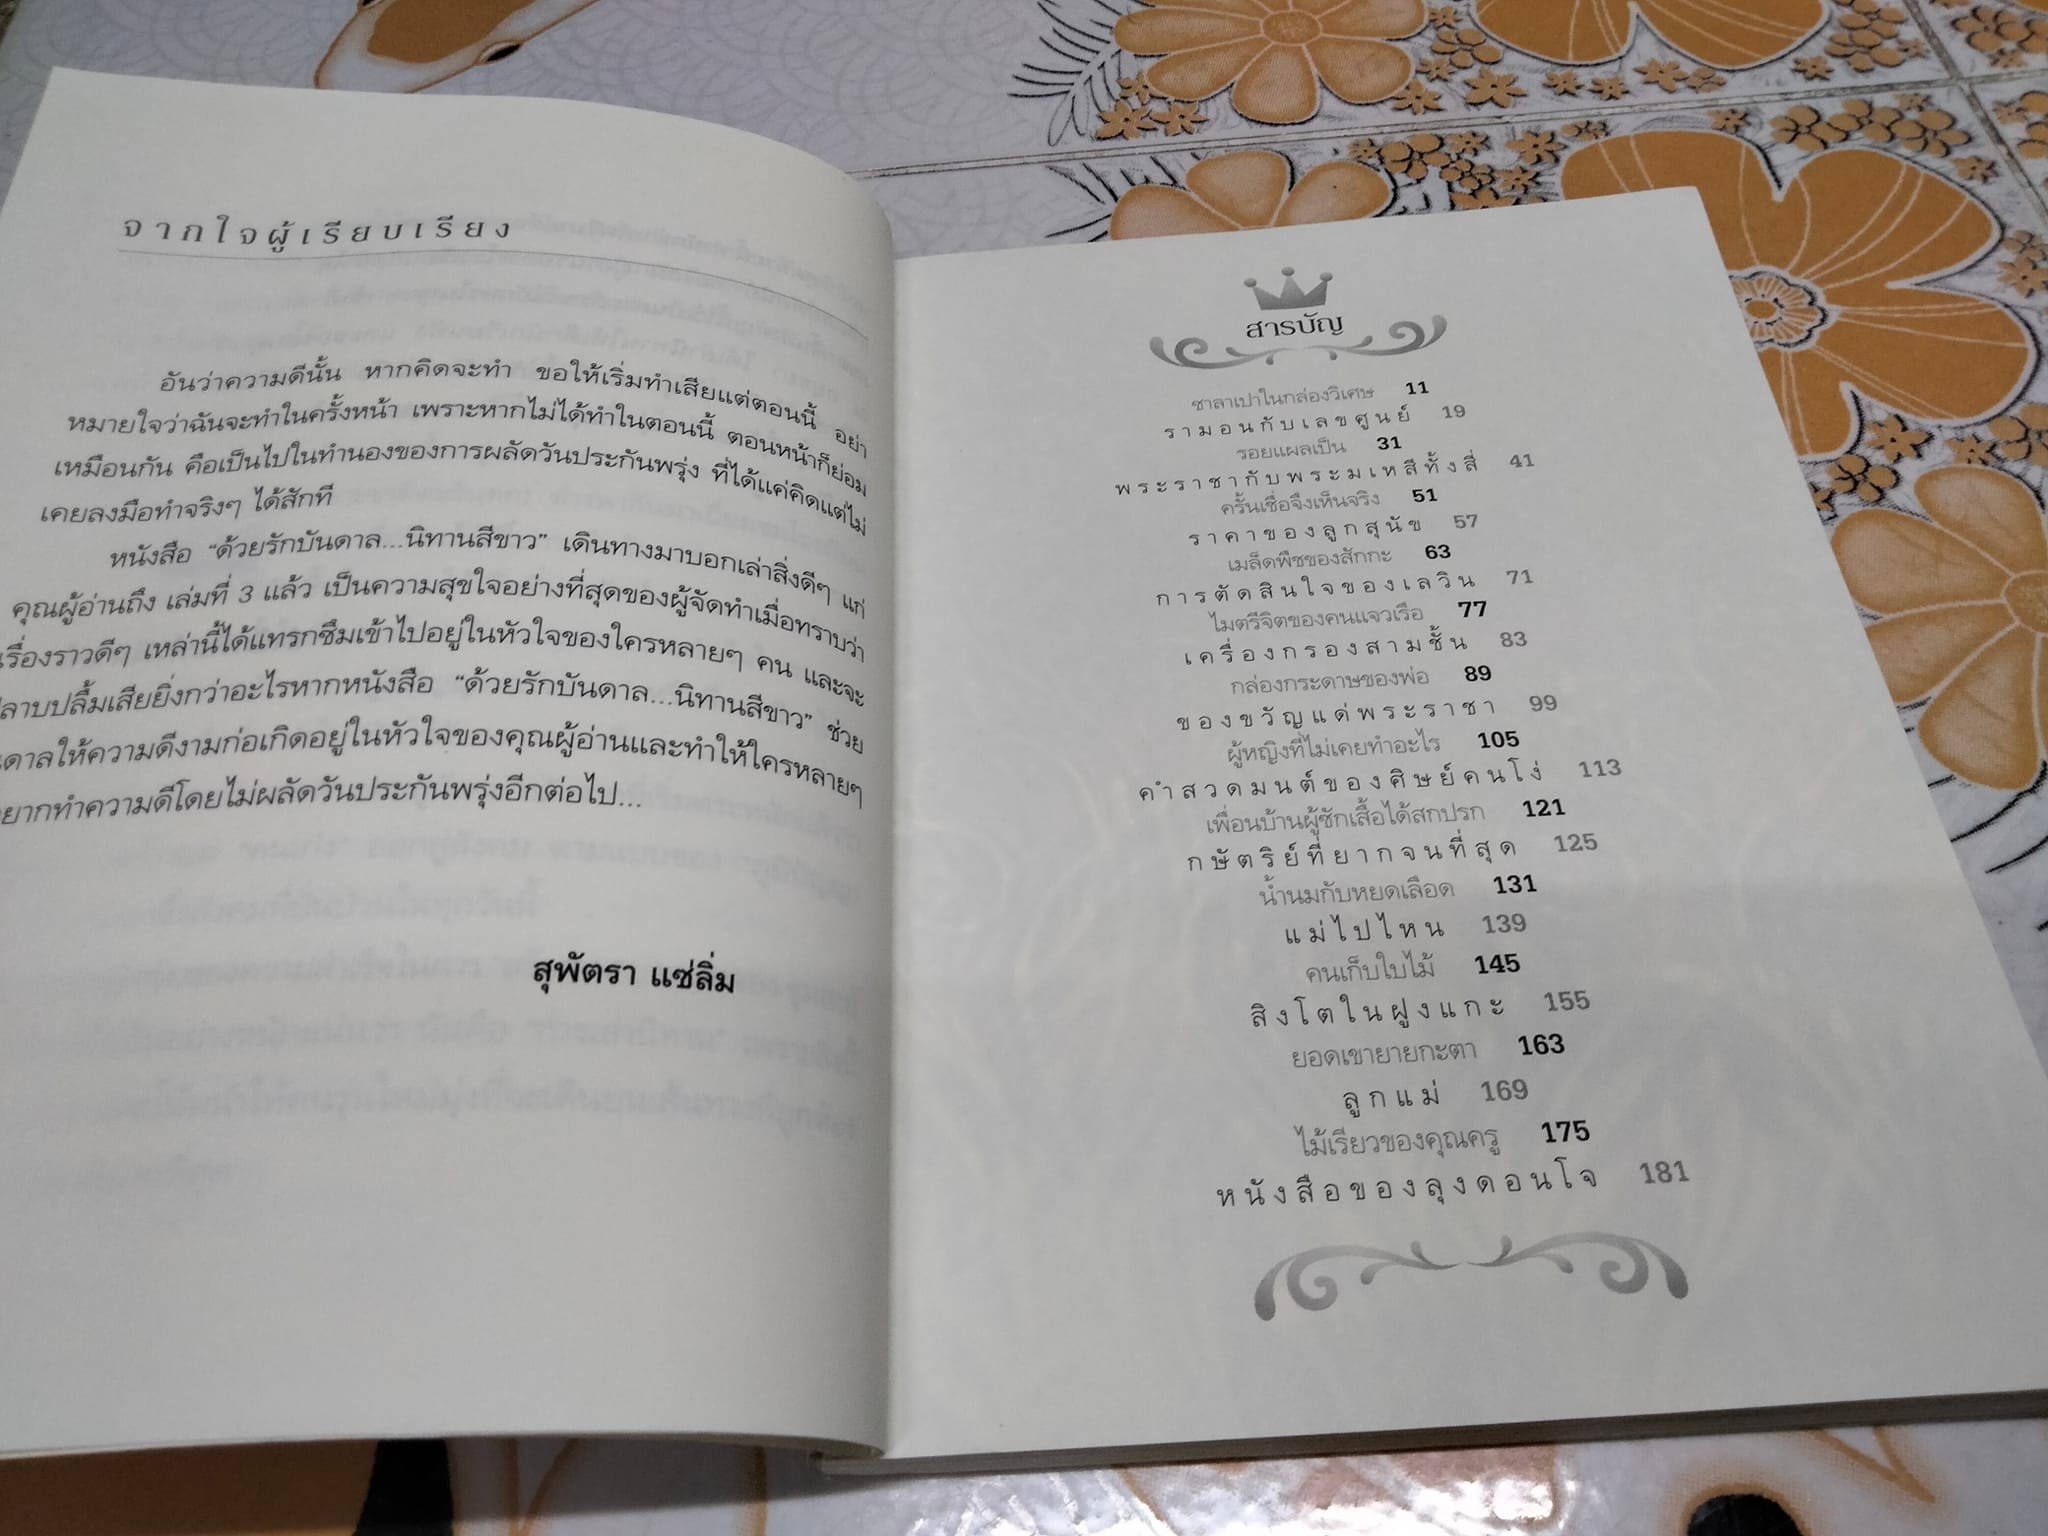 จากใจผู้เรียบเรียง
อันว่าความดีนั้น หากคิดจะทำ ขอให้เริ่มทำเสียแต่ตอนนี้ อย่า
หมายใจว่าฉันจะทำในครั้งหน้า เพราะหากไม่ได้ทำในตอนนี้ ตอนหน้าก็ย่อม
เหมือนกัน คือเป็นไปในทำนองของการผลัดวันประกันพรุ่ง ที่ได้แค่คิดแต่ไม่
เคยลงมือทำจริงๆ ได้สักที
หนังสือ “ด้วยรักบันดาล...นิทานสีขาว” เดินทางมาบอกเล่าสิ่งดีๆ แก่
คุณผู้อ่านถึง เล่มที่ 3 แล้ว เป็นความสุขใจอย่างที่สุดของผู้จัดทำเมื่อทราบว่า
เรื่องราวดีๆ เหล่านี้ได้แทรกซึมเข้าไปอยู่ในหัวใจของใครหลายๆ คน และจะ
ปลาบปลื้มเสียยิ่งกว่าอะไรหากหนังสือ “ด้วยรักบันดาล...นิทานสีขาว” ช่วย
ดาลให้ความดีงามก่อเกิดอยู่ในหัวใจของคุณผู้อ่านและทำให้ใครหลายๆ
อยากทำความดีโดยไม่ผลัดวันประกันพรุ่งอีกต่อไป...
สุพัตรา แซ่ลิ่ม
สารบัญ
ซาลาเปาในกล่องวิเศษ 11
รามอนกับเลขศูนย์ 19
รอยแผลเป็น 31
พระราชากับพระมเหสีทั้งสี่ 41
ครั้นเชื่อจึงเห็นจริง 51
ราคาของลูกสุนัข 57
เมล็ดพืชของสักกะ 63
การตัดสินใจของเลวิน 71
ไมตรีจิตของคนแจวเรือ 77
เครื่องกรองสามชั้น 83
กล่องกระดาษของพ่อ 89
ของขวัญแด่พระราชา 99
ผู้หญิงที่ไม่เคยทำอะไร 105
คำสวดมนต์ของศิษย์คนโง่ 113
เพื่อนบ้านผู้ซักเสื้อได้สกปรก 121
กษัตริย์ที่ยากจนที่สุด 125
น้ำนมกับหยดเลือด 131
แม่ไปไหน 139
คนเก็บใบไม้ 145
สิงโตในฝูงแกะ 155
ยอดเขายายกะตา 163
ลูกแม่ 169
ไม้เรียวของคุณครู 175
หนังสือของลุงดอนโจ 181